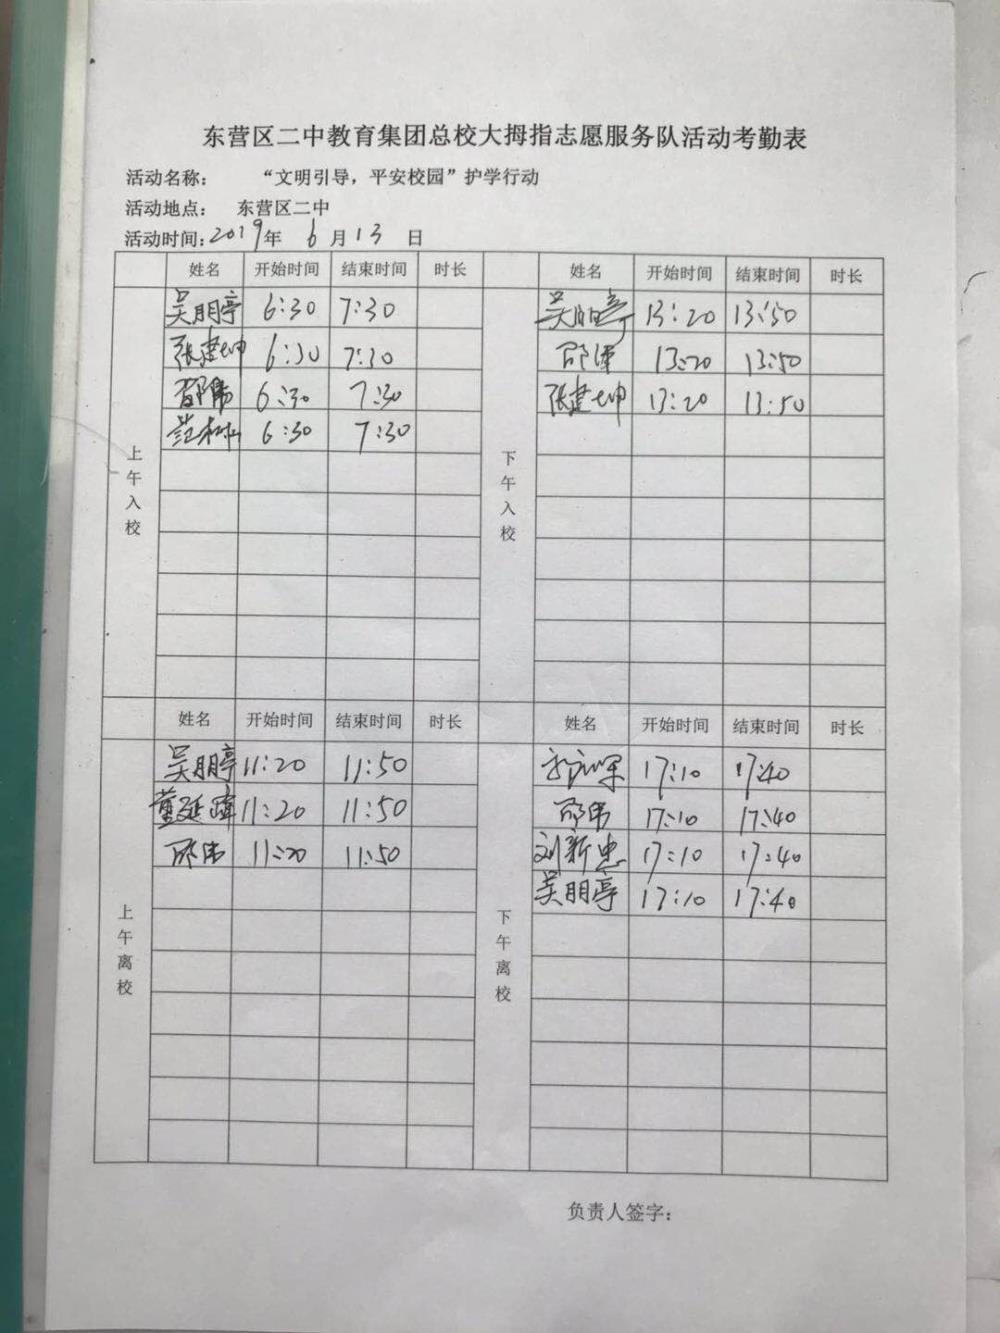 东营区二中教育集团总校大拇指志愿服务队活动考勤表
活动名称： “文明引导，平安校园”护学行动
活动地点： 东营区二中
活动时间：2019年 6 月 13 日
姓名 开始时间 结束时间 时长 姓名 开始时间 结束时间 时长
上午入校
吴明亭 6:30 7:30
张建坤 6:30 7:30
邵伟 6:30 7:30
范 6:30 7:30
下午入校
吴明亭 13:20 13:50
邵伟 13:20 13:50
张建坤 13:20 13:50
姓名 开始时间 结束时间 时长 姓名 开始时间 结束时间 时长
上午离校
吴明亭 11:20 11:50
董延 11:20 11:50
邵伟 11:20 11:50
下午离校
17:10 17:40
邵伟 17:10 17:40
刘新忠 17:10 17:40
吴明亭 17:10 17:40
负责人签字：